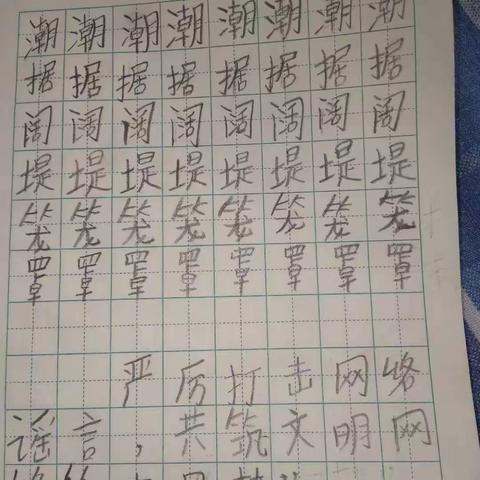 潮潮潮潮潮潮潮潮
据据据据据据据据
阔阔阔阔阔阔阔阔
堤堤堤堤堤堤堤堤
笼笼笼笼笼笼笼笼
罩罩罩罩罩罩罩罩
严厉打击网络
谣言，共筑文明网